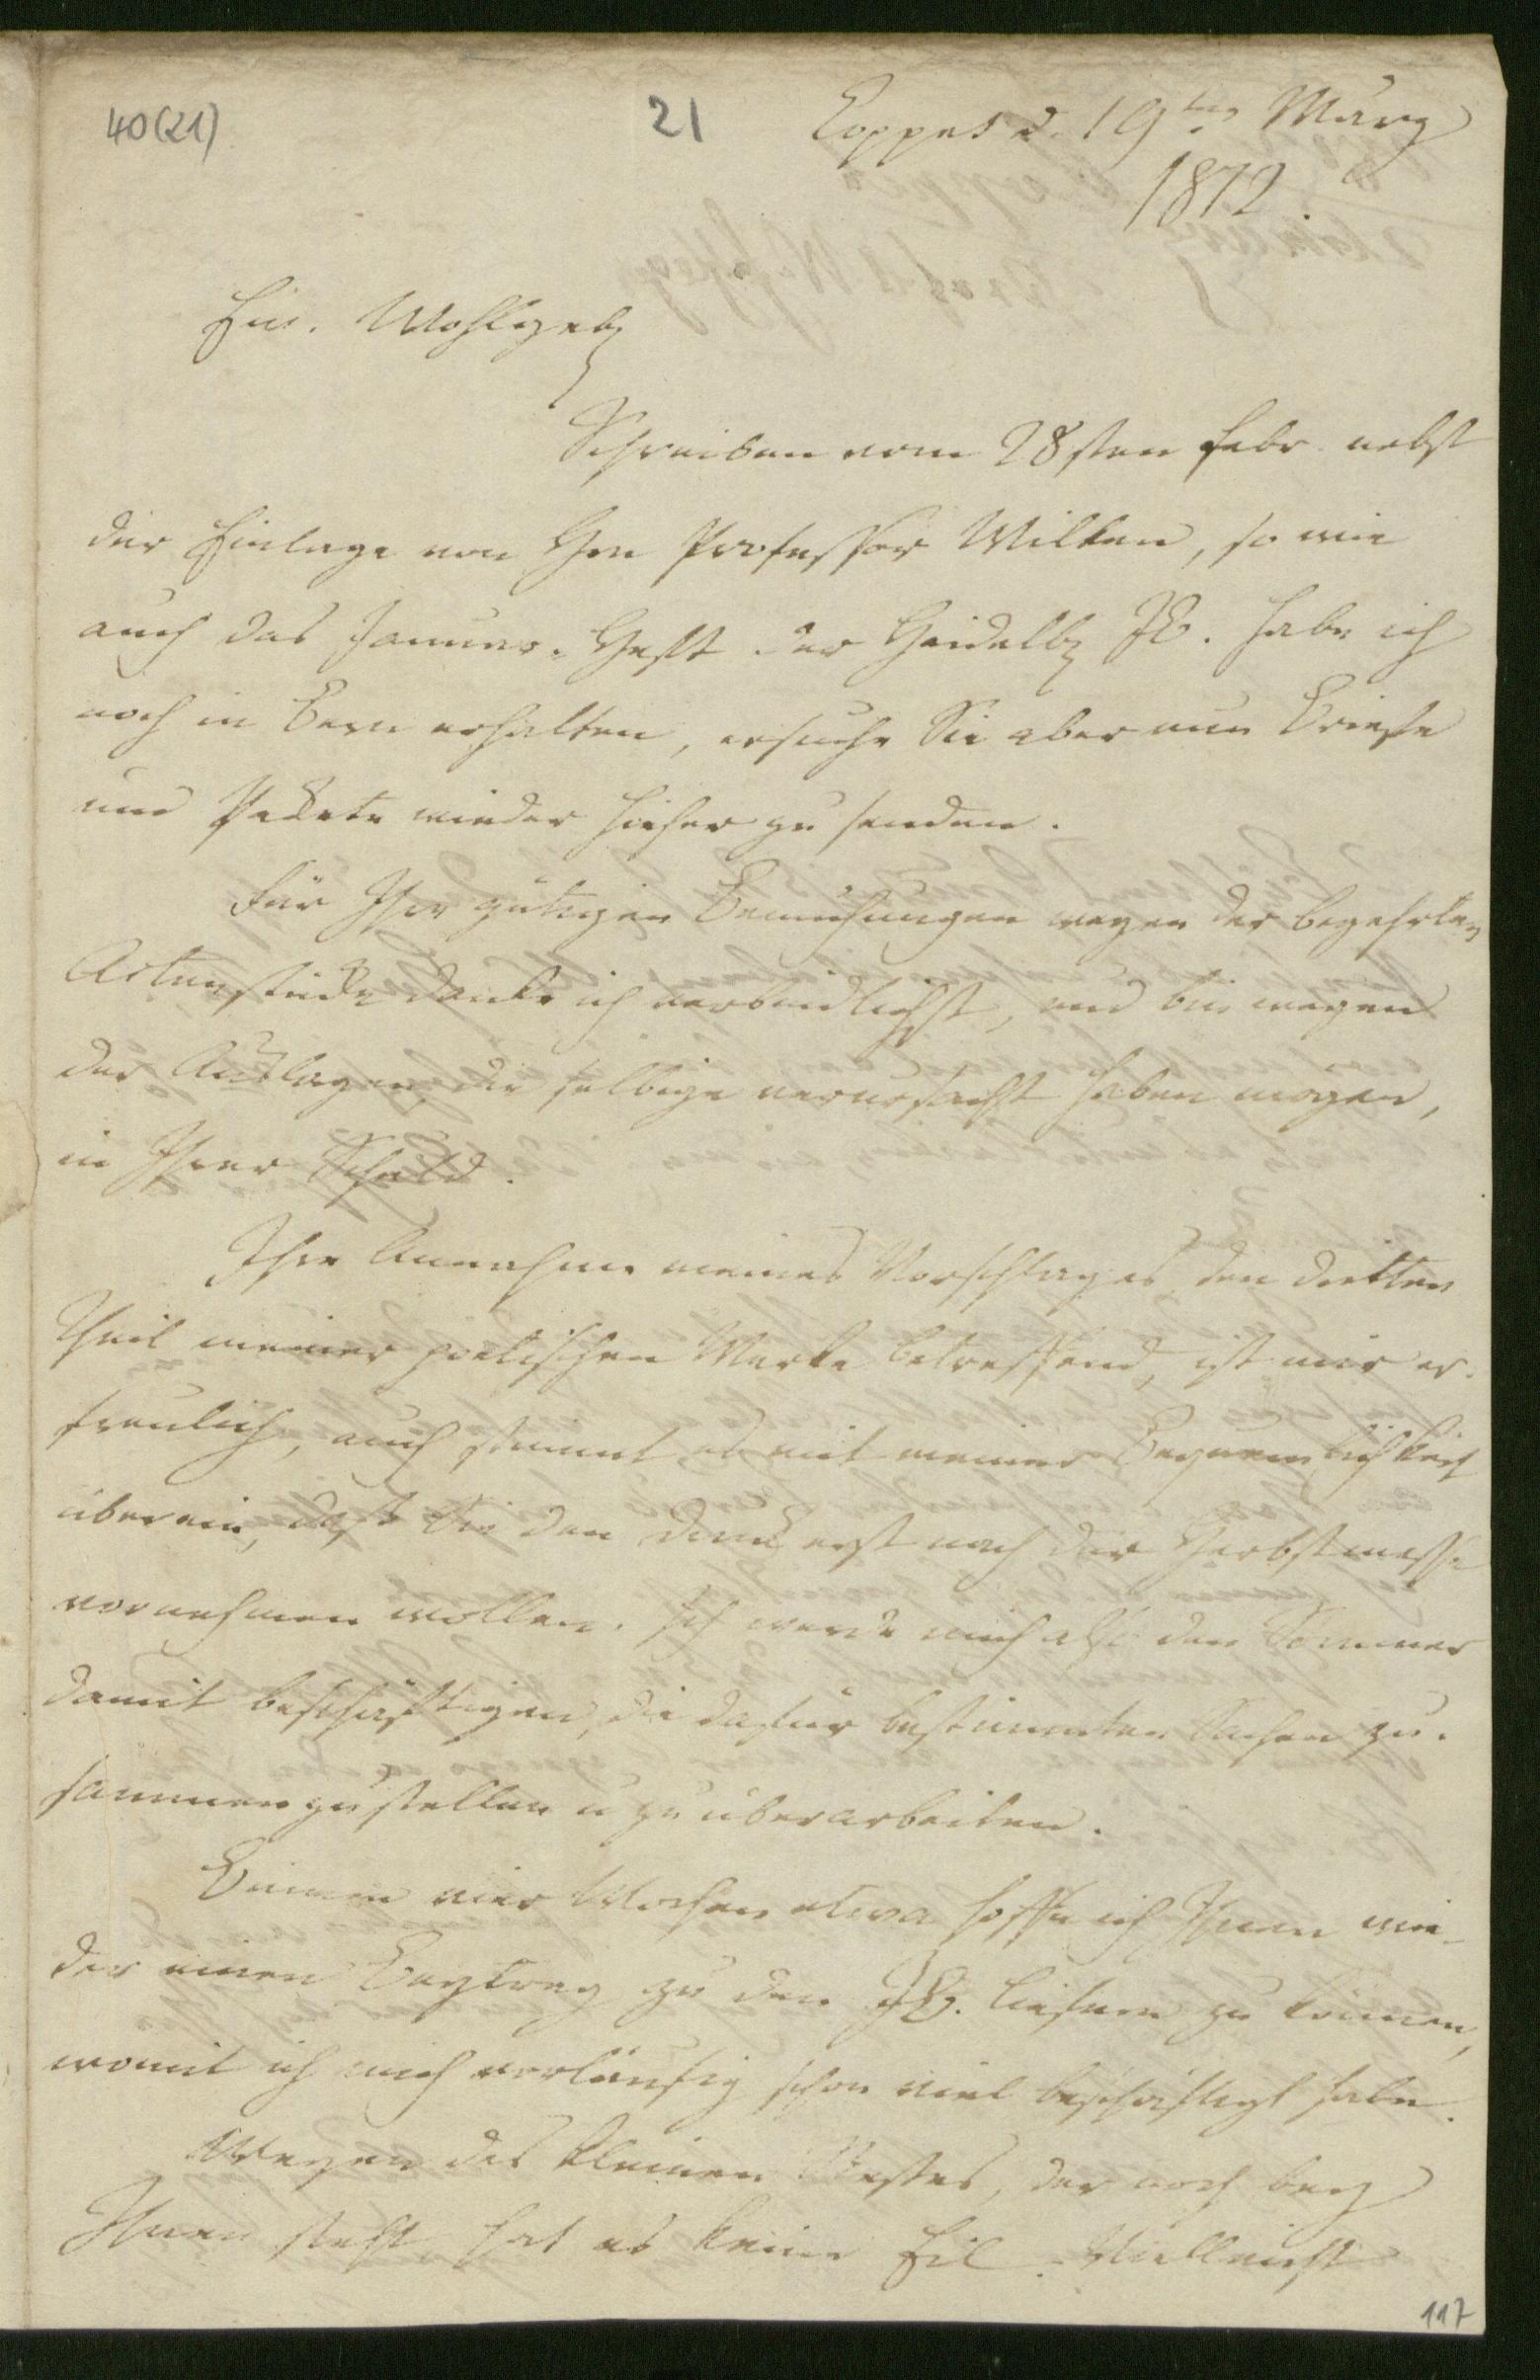 40(21)
21
Coppet d. 19ten März
1812.
Ew. Wohlgeb
Schreiben vom 28sten Febr. nebst
der Einlage von Hrn Professor Wilken, so wie
auch das Januar-Heft der Heidelbg JB. habe ich
noch in Bern erhalten, ersuche Sie aber nun Briefe
und Pakete wieder hieher zu senden.
Für Ihre gütigen Bemühungen wegen der begehrten
Actenstücke danke ich verbindlichst, und bin wegen
der Auslagen, die selbige verursacht haben mögen,
in Ihrer Schuld.
Ihre Annahme meines Vorschlages, den dritten
Theil meiner poetischen Werke betreffend, ist mir er-
freulich, auch stimmt es mit meiner Bequemlichkeit
überein, daß Sie den Druck erst nach der Herbstmesse
vornehmen wollen. Ich werde mich also den Sommer
damit beschäftigen, die dafür bestimmten Sachen zu-
sammenzustellen u zu überarbeiten.
Binnen vier Wochen etwa hoffe ich Ihnen wie-
der einen Beytrag zu den JB. liefern zu können,
womit ich mich vorläufig schon viel beschäftigt habe.
Wegen des kleinen Restes, der noch bey
Ihnen steht, hat es keine Eil. Vielleicht
117